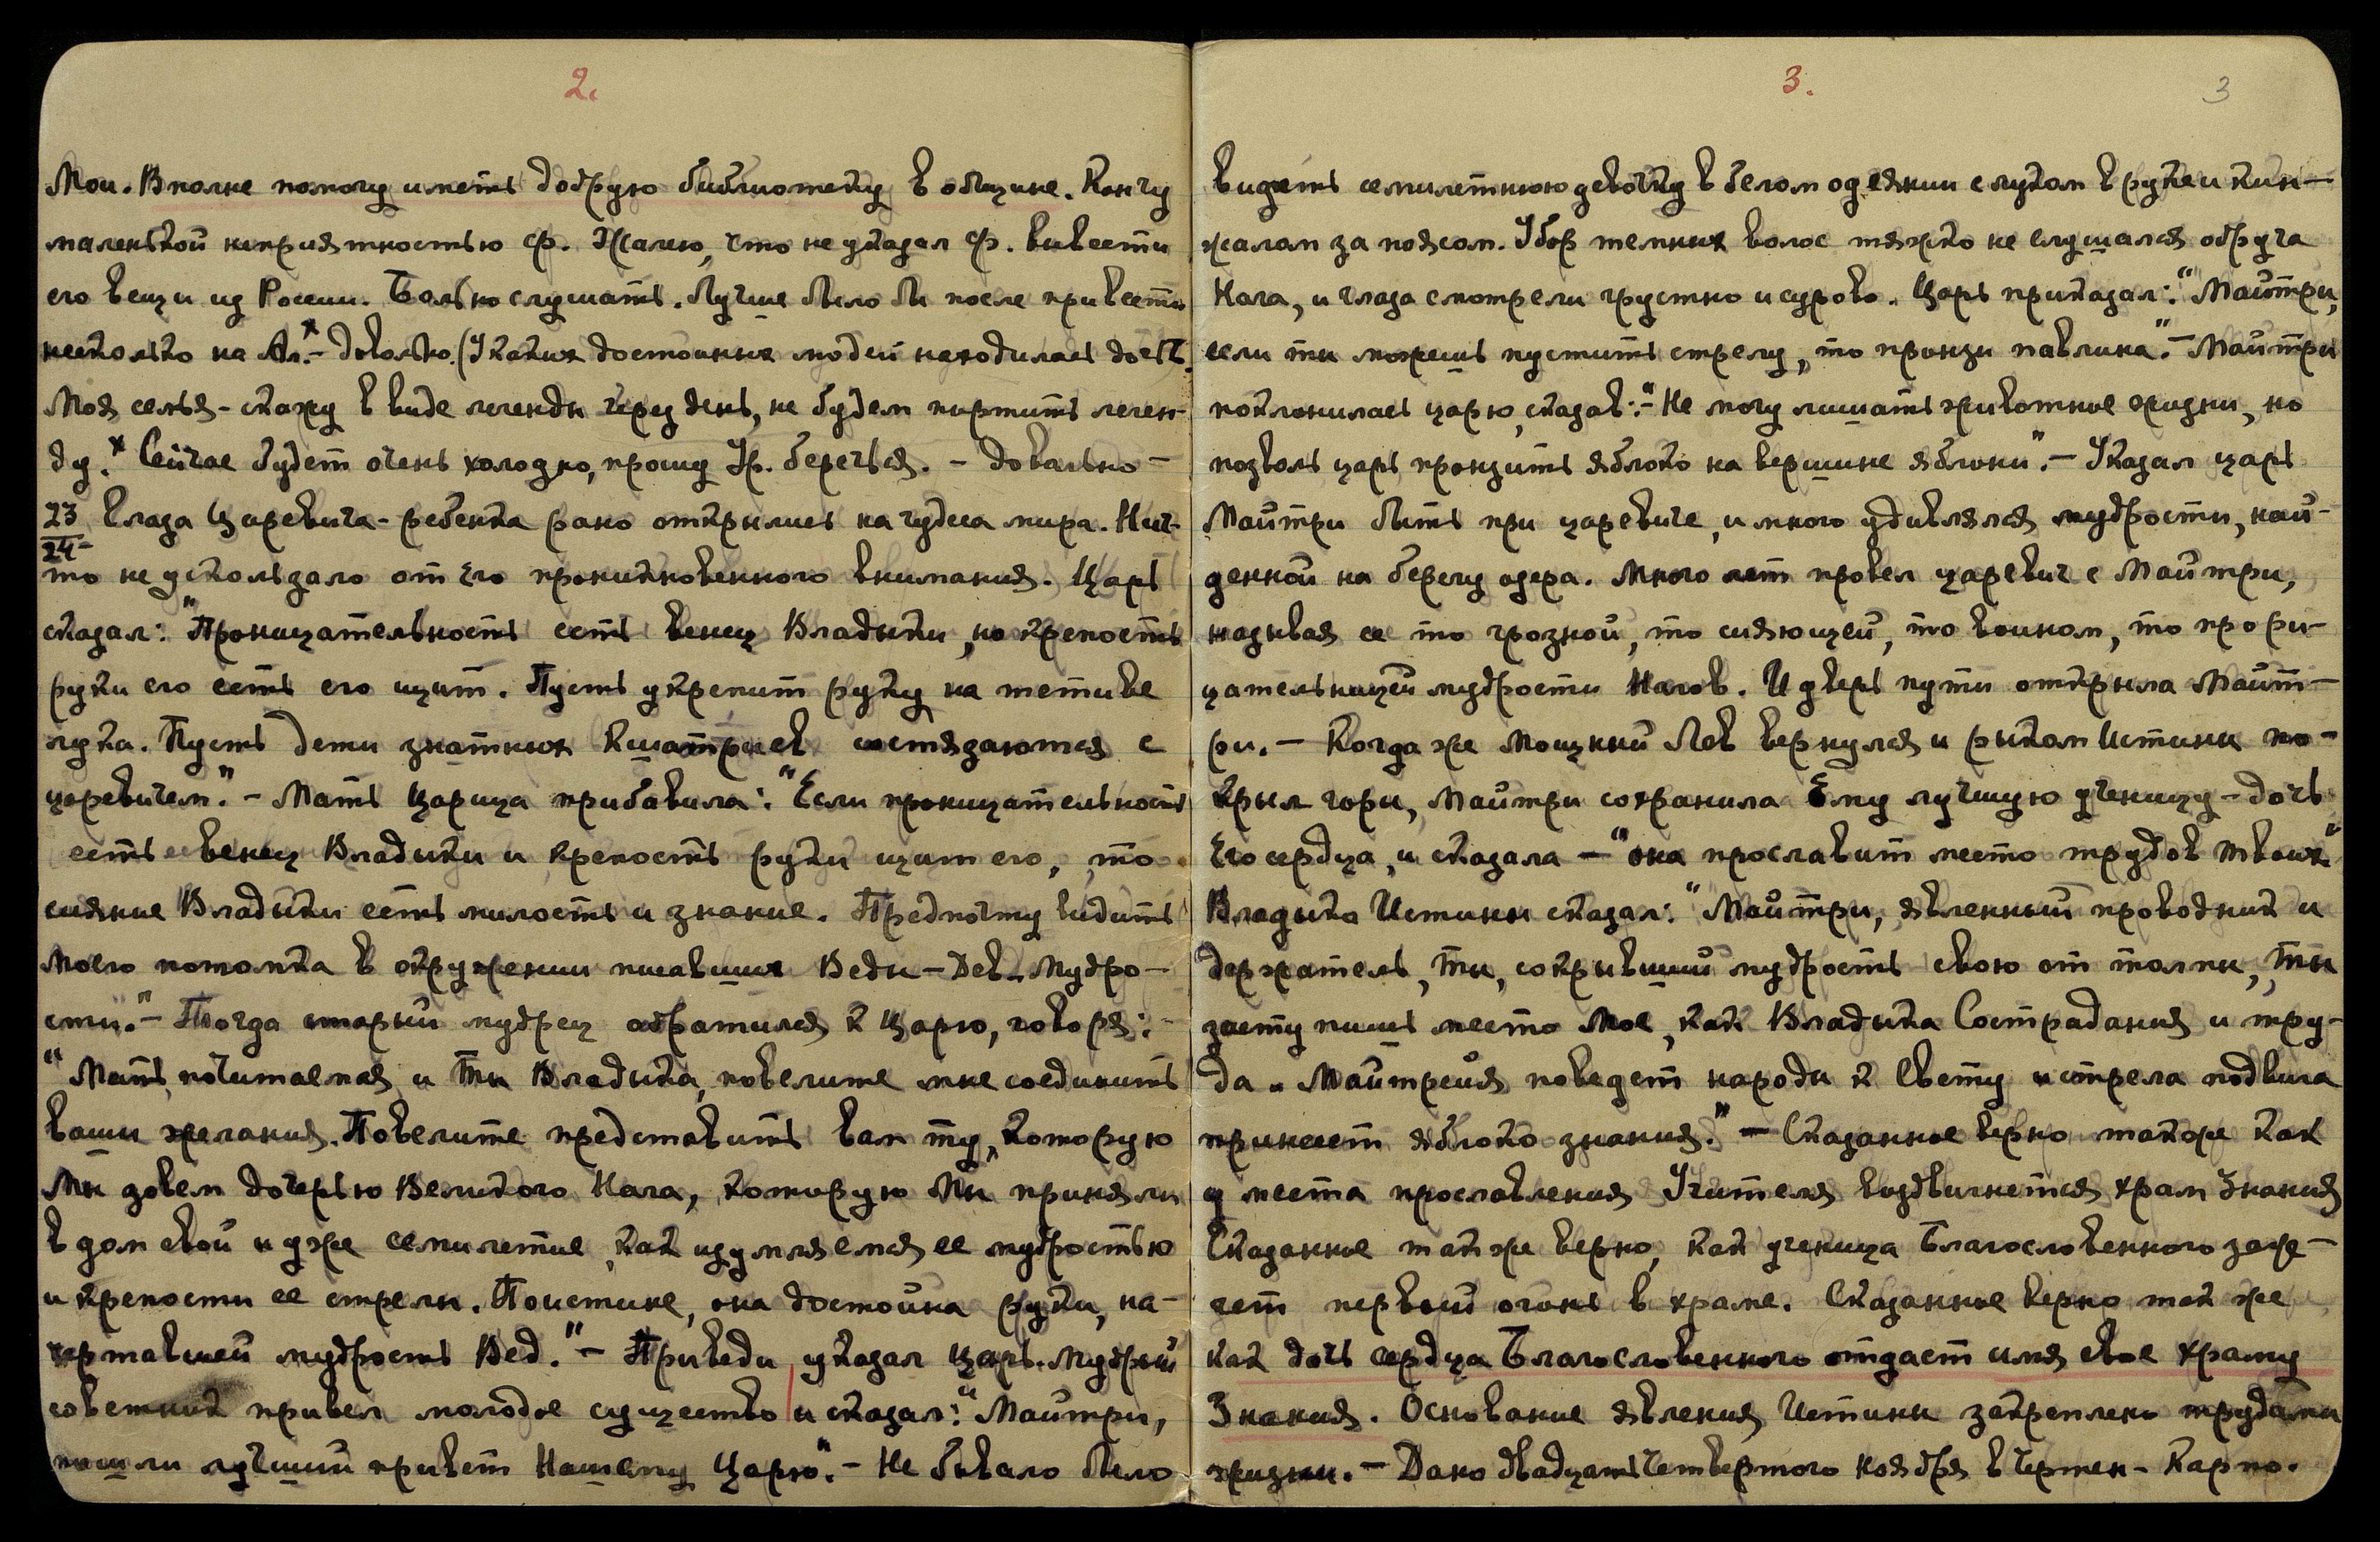 2.
Мои. Вполне помогу иметь добрую библиотеку в общине. Кончу
маленькой неприятностью Ф. Жалею, что не указал Ф. вывести
его вещи из России. Больно слушать. Лучше было бы после привести
несколько на Ал.ˣ – Довольно. (У каких достойных людей находилась
Моя семья – скажу в виде легенды через день, не будем портить леген-
ду.ˣ Сейчас будет очень холодно, прошу Ур. беречься. – Довольно –
23
24 – Глаза Царевича – ребенка рано открылись на чудеса мира. Нич-
то не ускользало от Его проникновенного внимания. Царь
сказал: "Проницательность есть венец Владыки, но крепость
руки его есть его щит. Пусть укрепит руку на тетиве
лука. Пусть дети знатных Кшатриев состязаются с
царевичем." – Мать Царица прибавила: "Если проницательность
есть венец Владыки и крепость руки щит его, то
сияние Владыки есть милость и знание. Предпочту видеть
моего потомка в окружении писавших Веды – Дев-Мудро-
сти." – Тогда старый мудрец обратился к Царю, говоря: –
"Мать почитаемая и Ты Владыка, повелите мне соединить
ваши желания. Повелите представить вам ту, которую
Мы зовем дочерью Великого Нага, которую Мы приняли
в дом свой и уже семилетие, как изумляемся ее мудростью
и крепости ее стрелы. Поистине, она достойна руки, на-
чертавшей мудрость Вед." – Приведи указал Царь. Мудрый
советник привел молодое существо и сказал: "Майтри,
пошли лучший привет Нашему Царю." – Не бывало было
3.
3
видеть семилетнюю девочку в белом одеянии с луком в руке и кин-
жалом за поясом. Убор темных волос тяжко не слушался обруча
Нага, и глаза смотрели грустно и сурово. Царь приказал: "Майтри,
если ты можешь пустить стрелу, то пронзи павлина." – Майтри
поклонилась царю, сказав: – "Не могу лишать животное жизни, но
позволь царь пронзить яблоко на вершине яблони". – Указал царь
Майтри быть при царевиче, и много удивлялся мудрости, най-
денной на берегу озера. Много лет провел царевич с Майтри,
называя ее то грозной, то сияющей, то воином, то прори-
цательницей мудрости Нагов. И дверь пути открыла Майт-
ри. – Когда же мощный Лев вернулся и рыком Истины по-
крыл горы, Майтри сохранила Ему лучшую ученицу – дочь
Его сердца, и сказала – "она прославит место трудов Твоих"
Владыка Истины сказал: "Майтри, явленный проводник и
держатель, Ты, сокрывший мудрость свою от толпы, Ты
заступишь место Мое, как Владыка Сострадания и тру-
да. Майтрейя поведет народы к Свету и стрела подвига
принесет яблоко знания." – Сказанное верно также как
у места прославления Учителя воздвигнется храм Знания
Сказанное так же верно, как ученица Благословенного заж-
жет первый огонь в храме. Сказанное верно так же
как дочь сердца Благословенного отдаст имя свое храму
Знания. Основание явления Истины закреплено трудами
жизни. – Дано двадцать четвертого ноября в Чертен-Карпо.